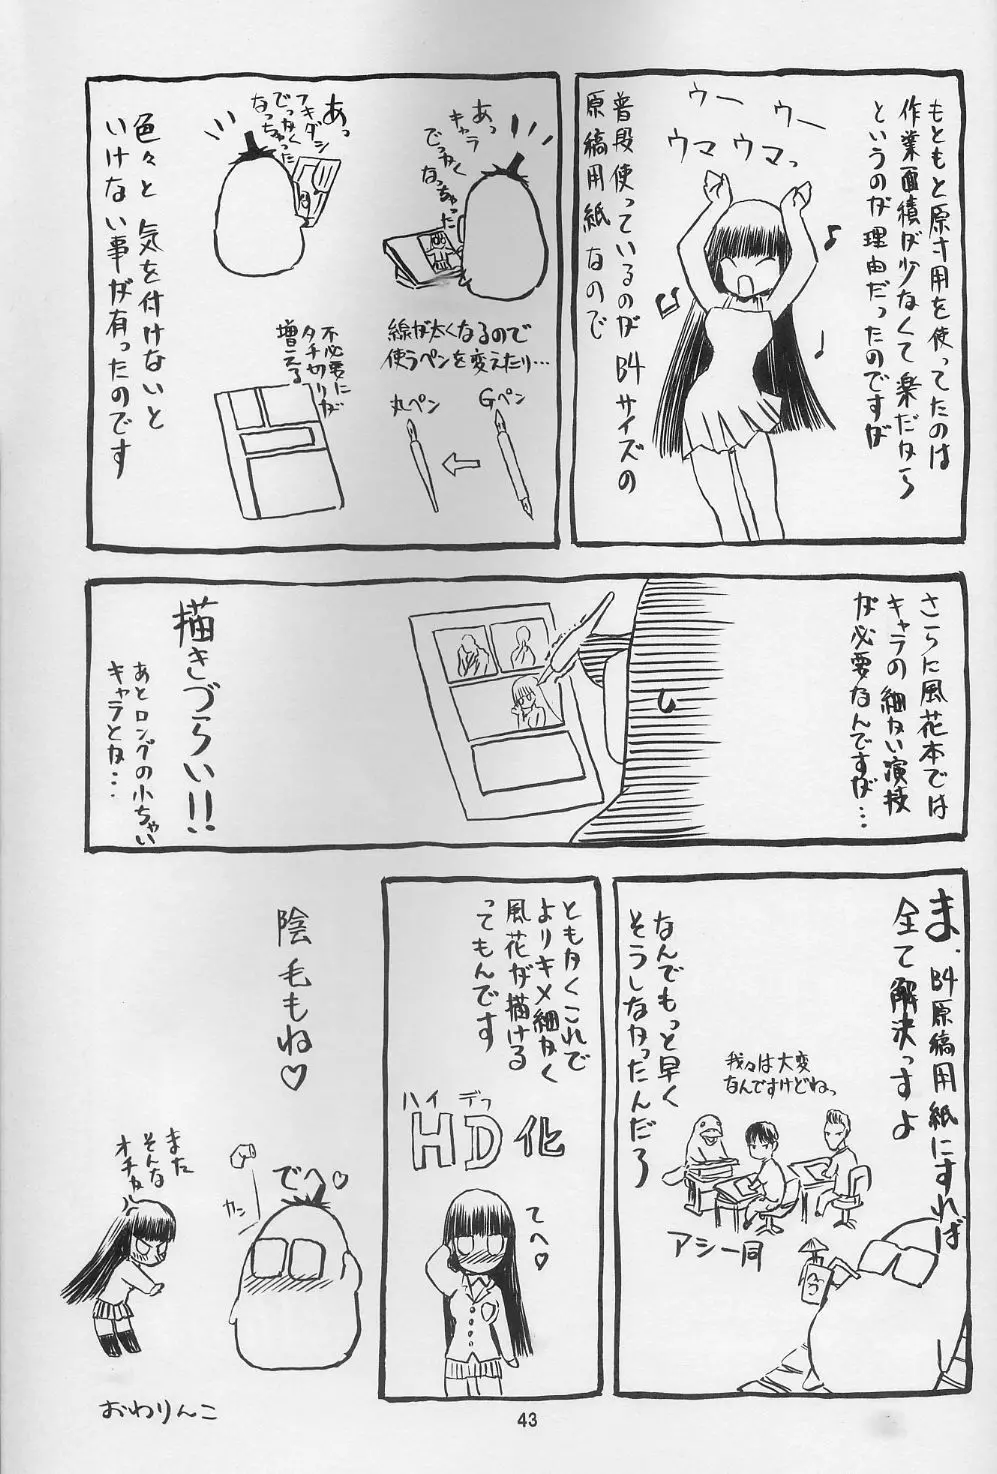 もともと原寸用を使ってたのは
作業面積が少なくて楽だから
というのが理由だったのですが
ウー
ウー
ウマ
ウマっ
普段使っているのがB4サイズの
原稿用紙なので
あっ
キャラ
でっかく
なっちゃった
あっ
フキダシ
でっかく
なっちゃった
線が太くなるので
使うペンを変えたり…
Gペン
丸ペン
不必要に
タチ切りが
増える
色々と気を付けないと
いけない事が有ったのです
さらに風花本では
キャラの細かい演技
が必要なんですが…
描きづらい!!
あとロングの小ちゃい
キャラとか…
ま、B4原稿用紙にすれば
全て解決っすよ
我々は大変
なんですけどねっ
アシ一同
なんでもっと早く
そうしなかったんだろ
ともかくこれで
よりキメ細かく
風花が描ける
ってもんです
ハイ デフ
HD化
てへ♡
陰毛もね♡
でへ♡
カン
また
そんな
オチか
おわりんこ
43